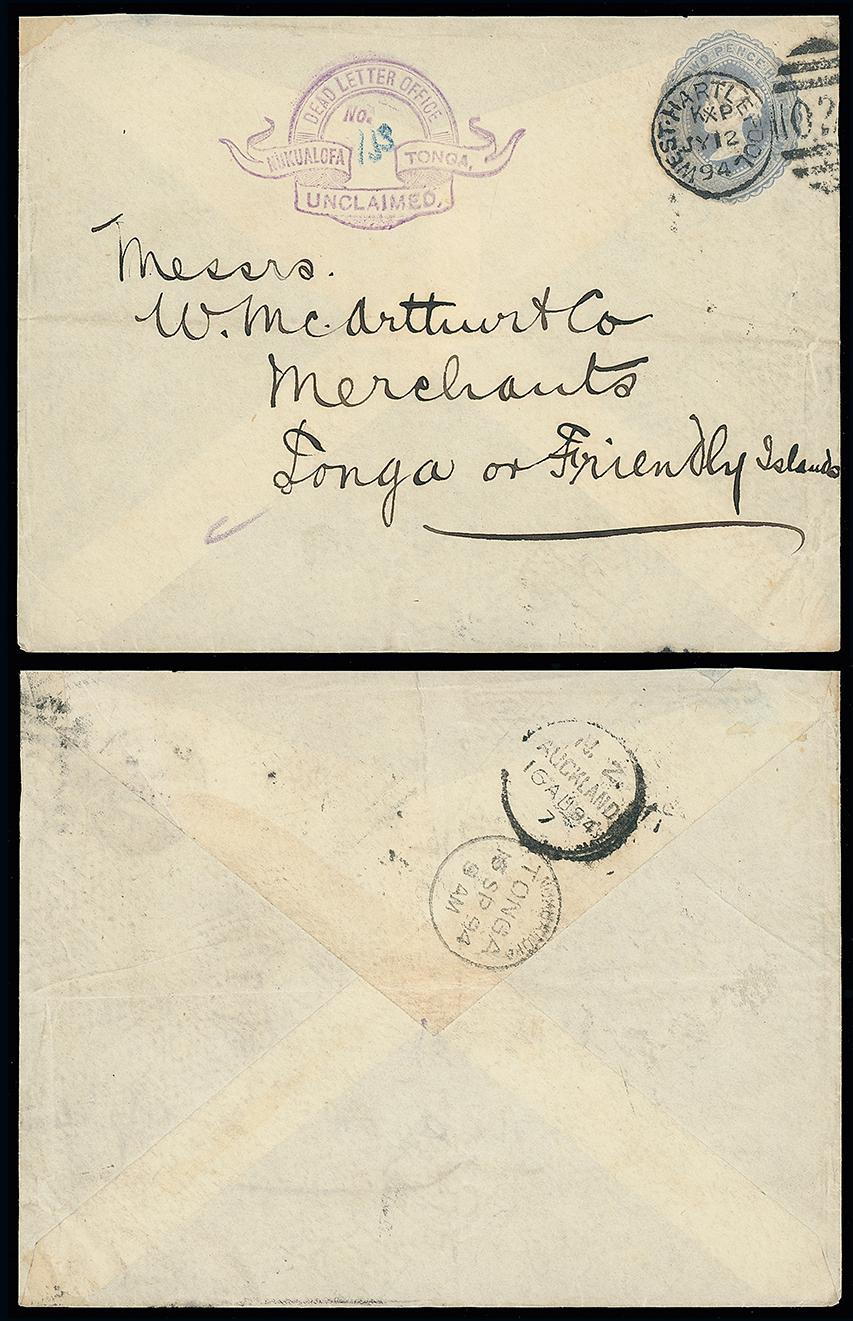 DEAD LETTER OFFICE
No.
NUKUALOFA TONGA,
UNCLAIMED,
PENCE
WEST-HARTLEPOOL
JY 12
94
Messrs.
W. Mc.Arthur & Co
Merchants
Tonga or Friendly Islands
N. Z.
AUCKLAND
16 AU 94
7
TONGA
SP 94
AM